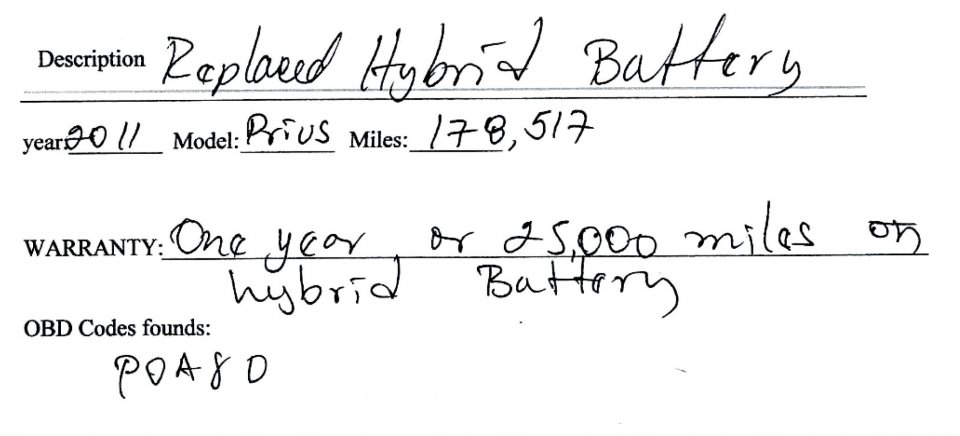 Description Replaced Hybrid Battery
year: 2011 Model: Prius Miles: 178,517
WARRANTY: One year or 25,000 miles on
hybrid Battery
OBD Codes founds:
P0A80